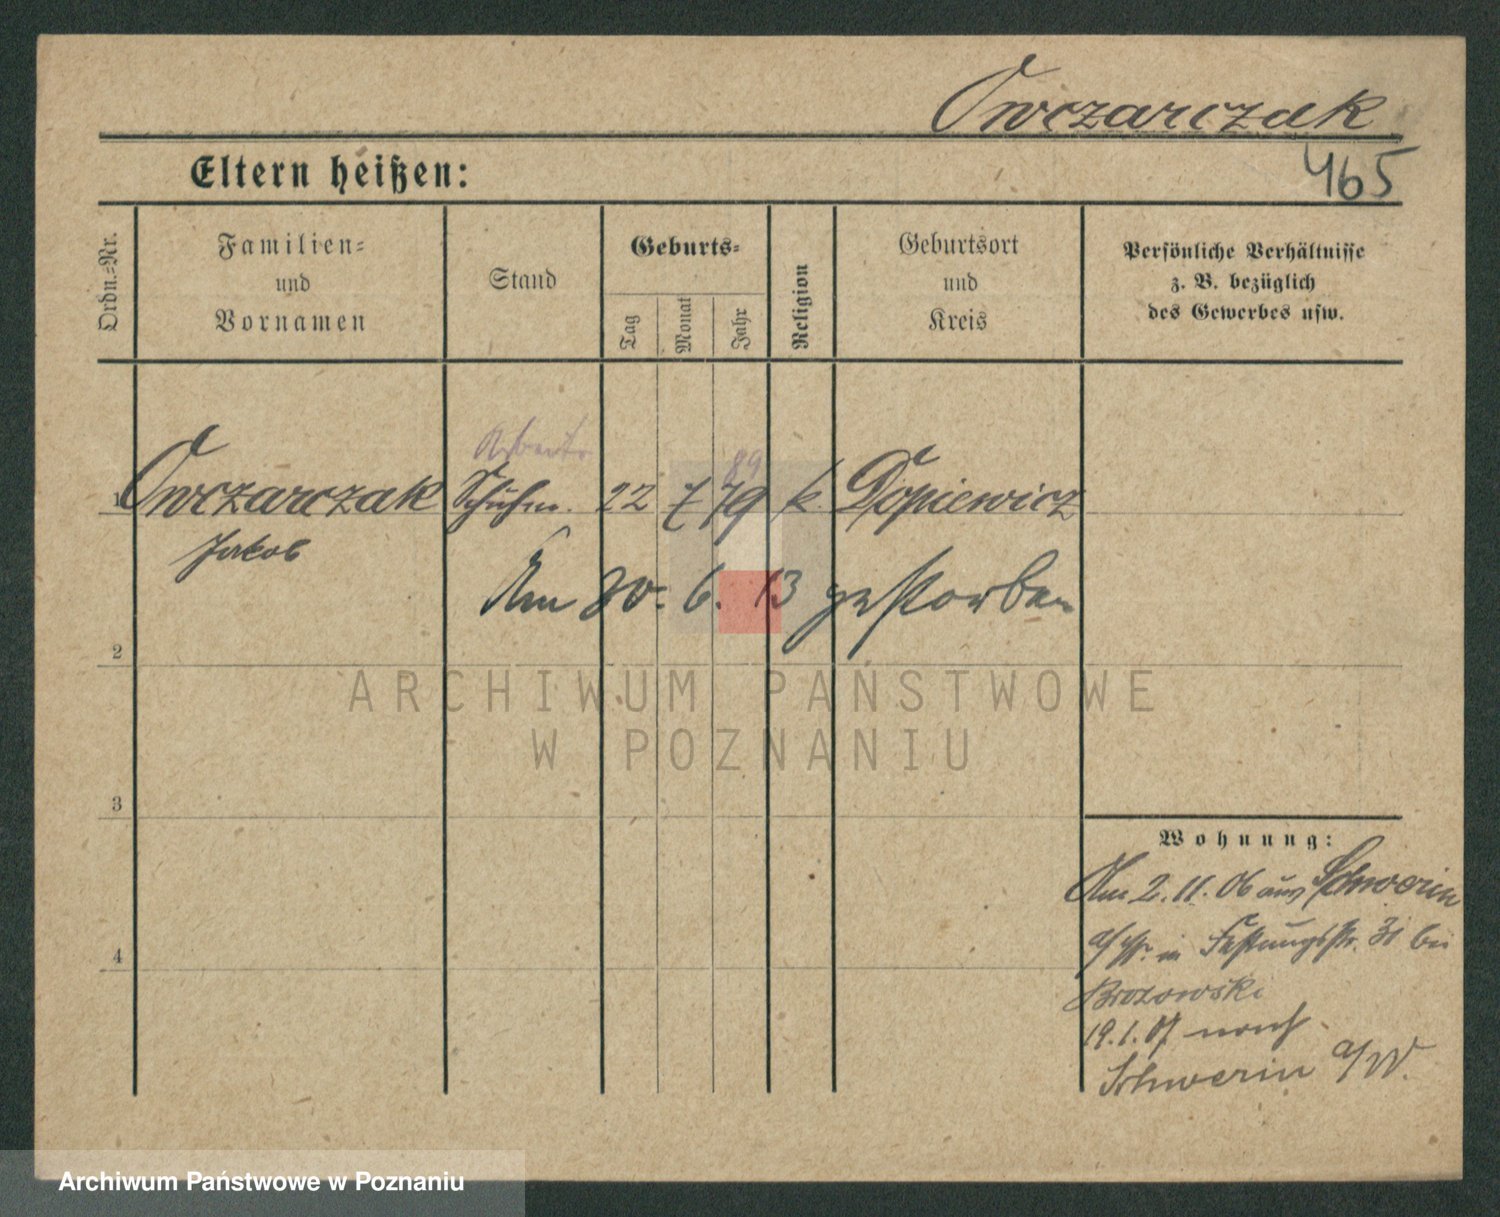 Owczarczak
465
Eltern heißen:
Ordn.-Nr.
Familien-
und
Vornamen
Stand
Geburts-
Tag
Monat
Jahr
Religion
Geburtsort
und
Kreis
Persönliche Verhältnisse
z. B. bezüglich
des Gewerbes usw.
Arbeiter
89
1 Owczarczak Schuhm. 22 7 79 k. Dopiewicz
Jakob
Am 20. 6. 13 gestorben
2
ARCHIWUM PAŃSTWOWE
W POZNANIU
3
Wohnung:
Am 2. 11. 06 aus Schwerin
a/W. in Festungsstr. 31 bei
4
Brozowski
19. 1. 07 nach
Schwerin a/W.
Archiwum Państwowe w Poznaniu